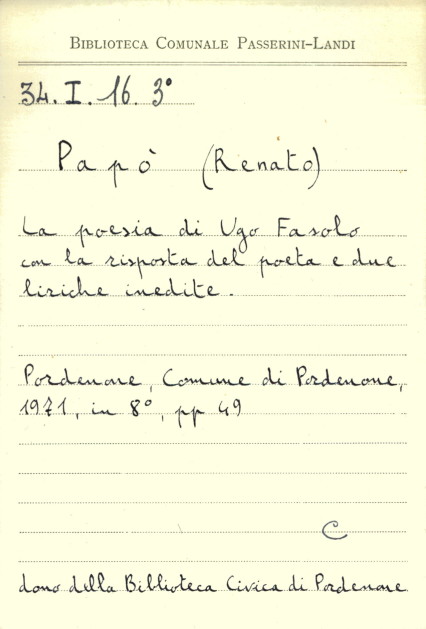 BIBLIOTECA COMUNALE PASSERINI-LANDI
34. I. 16. 3°
Papò (Renato)
La poesia di Ugo Fasolo
con la risposta del poeta e due
liriche inedite.
Pordenone, Comune di Pordenone,
1971, in 8°, pp 49
C
dono della Biblioteca Civica di Pordenone